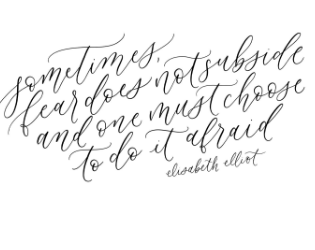 sometimes,
fear does not subside
and one must choose
to do it afraid
elisabeth elliot